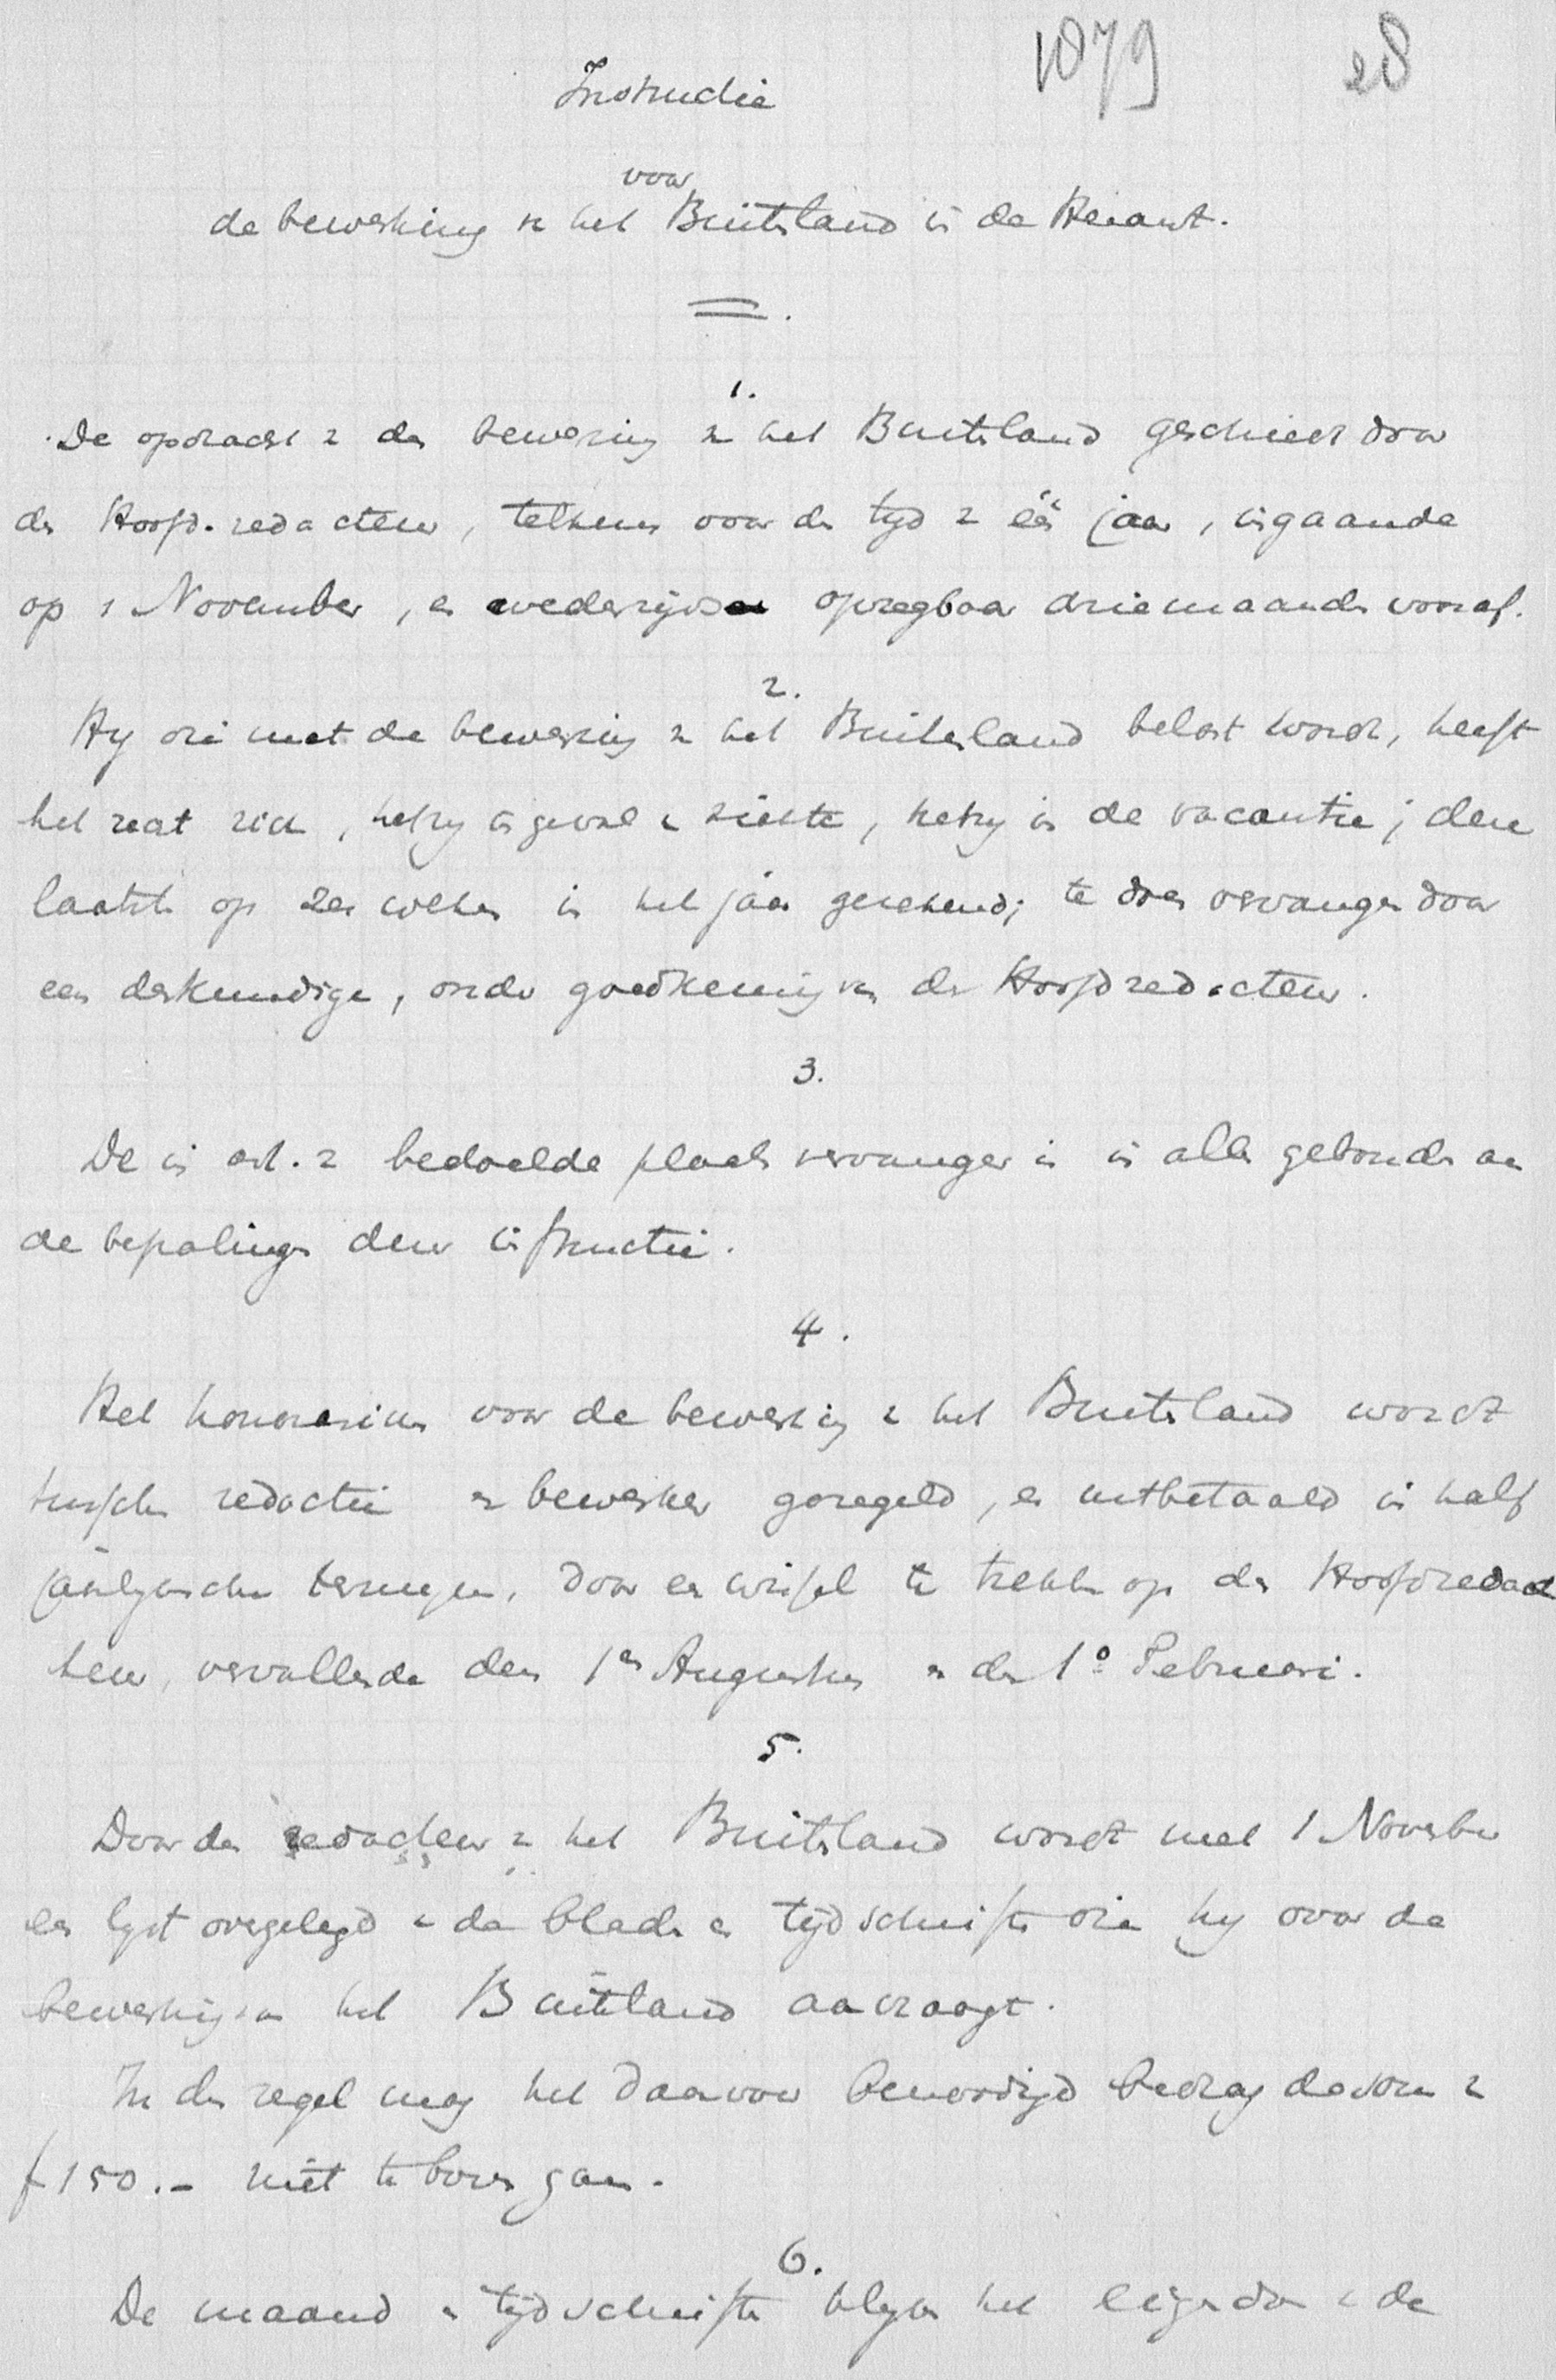 1079 28
Instructie
voor
de bewerking v. het Buitenland in de Heraut.
1.
De opdracht v. de bewerking v. het Buitenland geschiedt door
de Hoofd-redacteur, telkens voor de tijd v. één jaar, ingaande
op 1 November, en wederzijds opzegbaar drie maanden vooraf.
2.
Hij die met de bewerking v. het Buitenland belast wordt, heeft
het recht zich, hetzij in geval v. ziekte, hetzij in de vacantie; deze
laatste op zes weken in het jaar gerekend; te doen vervangen door
een deskundige, onder goedkeuring van de Hoofdredacteur.
3.
De in art. 2 bedoelde plaatsvervanger is in alles gebonden aan
de bepalingen dezer instructie.
4.
Het honorarium voor de bewerking v. het Buitenland wordt
tusschen redactie en bewerker geregeld, en uitbetaald in half
jaarlijksche termijnen, door een wissel te trekken op de Hoofdredac
teur, vervallende den 1en Augustus en den 1o Februari.
5.
Door den redacteur v. het Buitenland wordt met 1 November
een lijst overgelegd v. de bladen en tijdschriften die hij voor de
bewerking van het Buitenland aanvraagt.
In den regel mag het daarvoor benoodigd bedrag de som v.
f 150.- niet te boven gaan.
6.
De maand en tijdschriften blijven het eigendom v. de